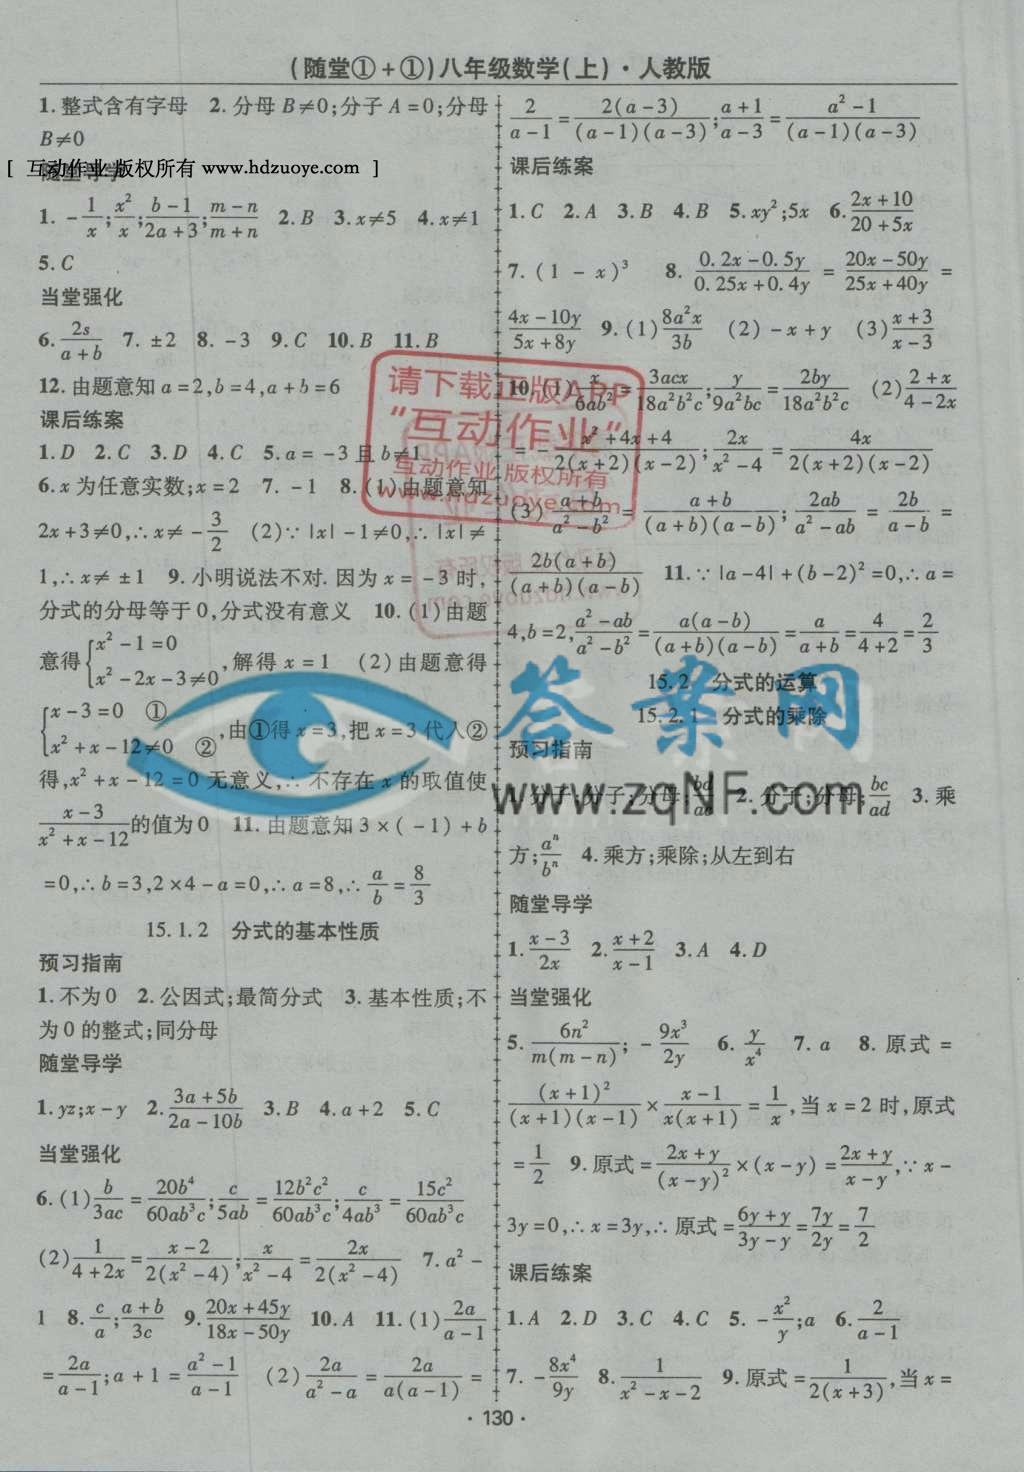 (随堂①+①)八年级数学(上)·人教版
1. 整式含有字母 2. 分母 B≠0;分子 A=0;分母
B≠0
[ 互动作业 版权所有 www.hdzuoye.com ]
随堂导学
1. -1/x;x²/x;(b-1)/(2a+3);(m-n)/(m+n) 2. B 3. x≠5 4. x≠1
5. C
当堂强化
6. 2s/(a+b) 7. ±2 8. -3 9. C 10. B 11. B
12. 由题意知 a=2,b=4,a+b=6
课后练案
1. D 2. C 3. D 4. C 5. a=-3 且 b≠1
6. x 为任意实数;x=2 7. -1 8. (1)由题意知
2x+3≠0,∴x≠-3/2 (2)∵|x|-1≠0,∴|x|≠
1,∴x≠±1 9. 小明说法不对. 因为 x=-3 时,
分式的分母等于 0,分式没有意义 10. (1)由题
意得{x²-1=0
x²-2x-3≠0,解得 x=1 (2)由题意得
{x-3=0 ①
x²+x-12≠0 ②,由①得 x=3,把 x=3 代入②
得,x²+x-12=0 无意义,∴不存在 x 的取值使
(x-3)/(x²+x-12)的值为 0 11. 由题意知 3×(-1)+b
=0,∴b=3,2×4-a=0,∴a=8,∴a/b=8/3
15.1.2 分式的基本性质
预习指南
1. 不为 0 2. 公因式;最简分式 3. 基本性质;不
为 0 的整式;同分母
随堂导学
1. yz;x-y 2. (3a+5b)/(2a-10b) 3. B 4. a+2 5. C
当堂强化
6. (1)b/3ac=20b⁴/60ab³c;c/5ab=12b²c²/60ab³c;c/4ab³=15c²/60ab³c
(2)1/(4+2x)=(x-2)/2(x²-4);x/(x²-4)=2x/2(x²-4) 7. a²-
1 8. c/a;(a+b)/3c 9. (20x+45y)/(18x-50y) 10. A 11. (1)2a/(a-1)
=2a/(a-1);a+1=(a²-1)/(a-1) (2)2a/(a²-a)=2a/a(a-1)=
2/(a-1)=2(a-3)/(a-1)(a-3);(a+1)/(a-3)=(a²-1)/(a-1)(a-3)
课后练案
1. C 2. A 3. B 4. B 5. xy²;5x 6. (2x+10)/(20+5x)
7. (1-x)³ 8. (0.2x-0.5y)/(0.25x+0.4y)=(20x-50y)/(25x+40y)=
(4x-10y)/(5x+8y) 9. (1)8a²x/3b (2)-x+y (3)(x+3)/(x-3)
10. (1)x/6ab²=3acx/18a²b²c;y/9a²bc=2by/18a²b²c (2)(2+x)/(4-2x)
=-(x²+4x+4)/2(x+2)(x-2);2x/(x²-4)=4x/2(x+2)(x-2)
(3)(a+b)/(a²-b²)=(a+b)/(a+b)(a-b);2ab/(a²-ab)=2b/(a-b)=
2b(a+b)/(a+b)(a-b) 11. ∵|a-4|+(b-2)²=0,∴a=
4,b=2,(a²-ab)/(a²-b²)=a(a-b)/(a+b)(a-b)=a/(a+b)=4/(4+2)=2/3
15.2 分式的运算
15.2.1 分式的乘除
预习指南
1. 分子;分子;分母;bd/ac 2. 分子;分母;bc/ad 3. 乘
方;aⁿ/bⁿ 4. 乘方;乘除;从左到右
随堂导学
1. (x-3)/2x 2. (x+2)/(x-1) 3. A 4. D
当堂强化
5. 6n²/m(m-n);-9x³/2y 6. y/x⁴ 7. a 8. 原式=
(x+1)²/(x+1)(x-1)×(x-1)/x(x+1)=1/x,当 x=2 时,原式
=1/2 9. 原式=(2x+y)/(x-y)²×(x-y)=(2x+y)/(x-y),∵x-
3y=0,∴x=3y,∴原式=(6y+y)/(3y-y)=7y/2y=7/2
课后练案
1. A 2. D 3. C 4. C 5. -x²/y;a 6. 2/(a-1)
7. -8x⁴/9y 8. 1/(x²-x-2) 9. 原式=1/2(x+3),当 x=
·130·
请下载正版APP
“互动作业”
互动作业 版权所有
www.hdzuoye.com
答案网
www.zqNF.com